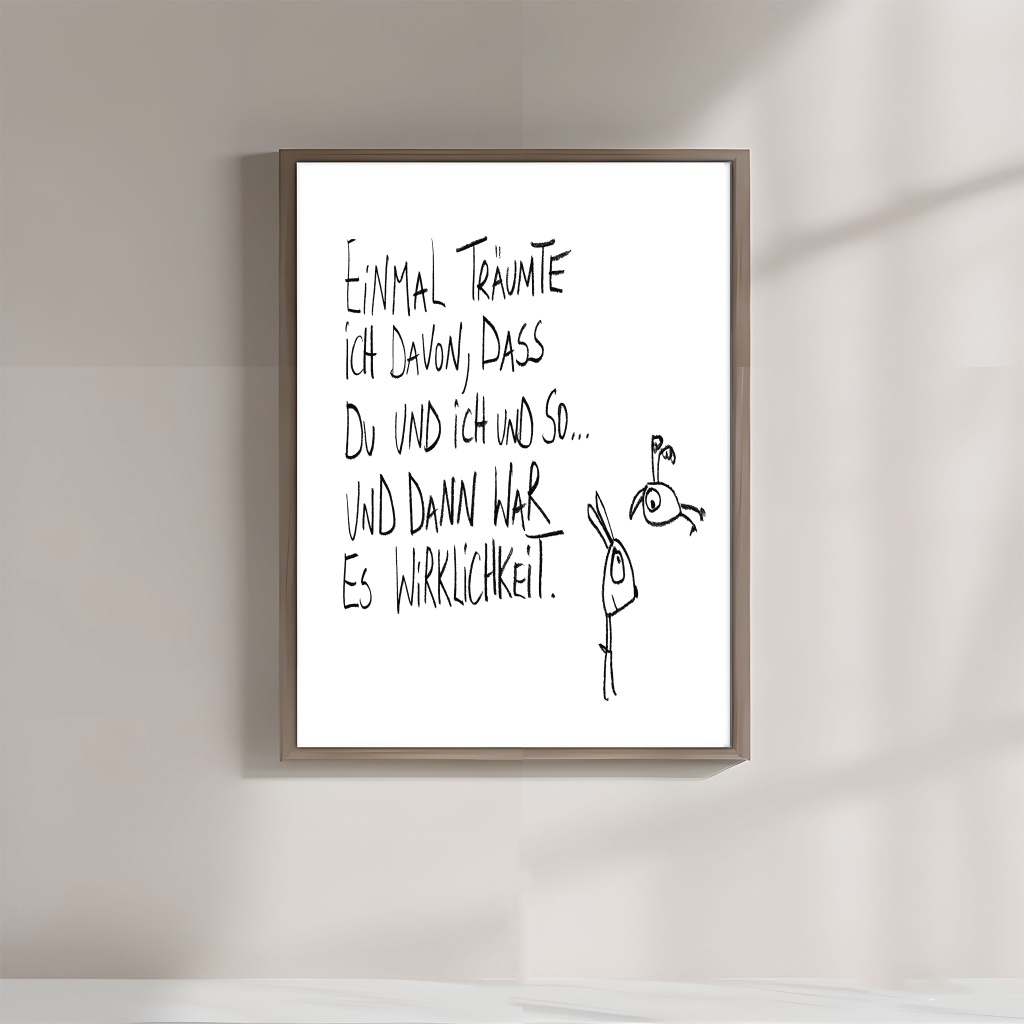 EINMAL TRÄUMTE
ICH DAVON, DASS
DU UND ICH UND SO...
UND DANN WAR
ES WIRKLICHKEIT.